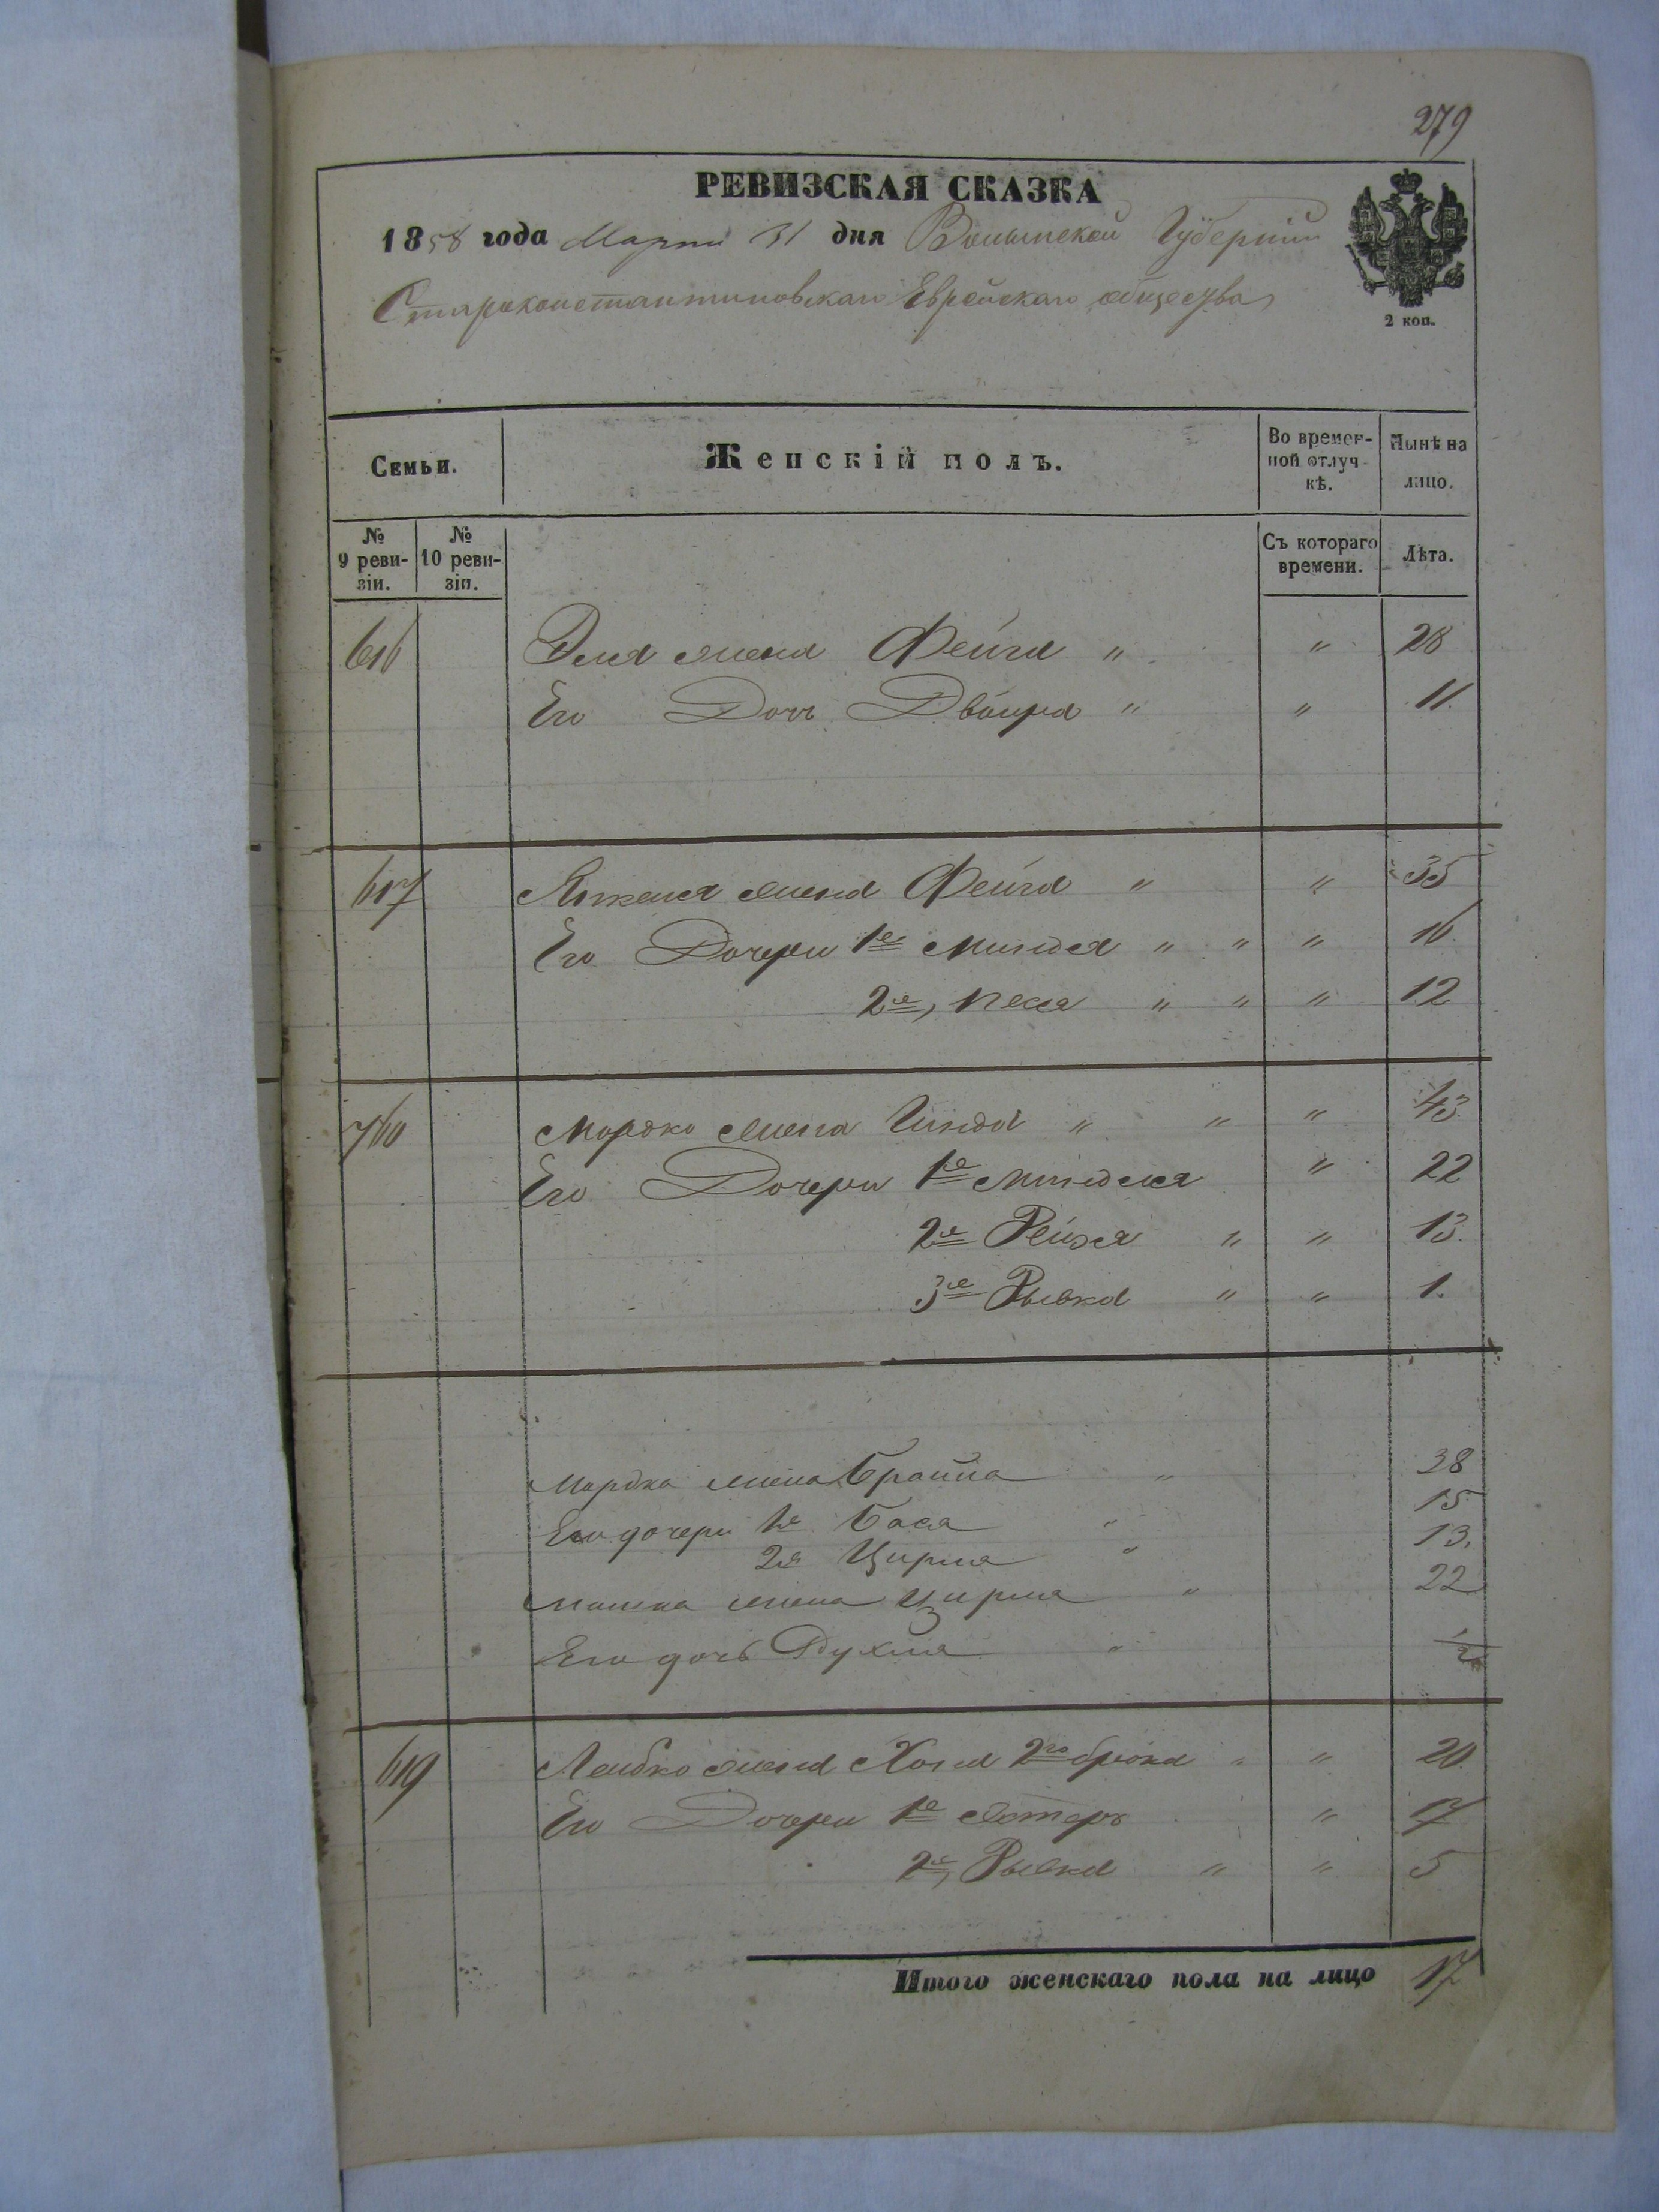 279
РЕВИЗСКАЯ СКАЗКА
1858 года Марта 31 дня Волынской Губерніи
Староконстантиновскаго Еврейскаго общества
2 коп.
Семьи. Женскій полъ. Во времен-ной отлуч-кѣ. Нынѣ на лицо.
№ 9 реви-зіи. № 10 реви-зіи. Съ котораго времени. Лѣта.
616 Эля жена Фейга " " 28
Его Дочь Двойра " " 11.
617 жена Фейга " " 35
Его Дочери 1я Миндля " " " 16.
2я, Песя " " " 12
760 Мордко жена Гинда " " " 43.
Его Дочери 1я Миндля " 22
2я Рейзя " " 13.
3я Рывка " " 1.
Мордка жена Брайна " 38
Его дочери 1я Бася " 15
2я Цирля " 13.
жена Цирля " 22
Его дочь Рухля " 1/2
619 Лейбко жена Хана 2го брака " " 20.
Его Дочери 1я Эстеръ " 17
2я, Рывка " " 5
Итого женскаго пола на лицо 17